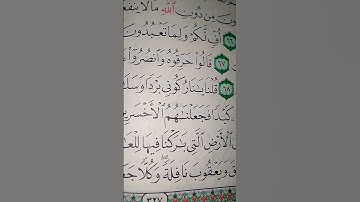 ونَ مِن دُونِ ٱللَّهِ مَا لَا يَنفَعُ
٦٦ أُفٍّ لَّكُمْ وَلِمَا تَعْبُدُونَ
٦٧ قَالُوا۟ حَرِّقُوهُ وَٱنصُرُوٓا۟ ءَا
٦٨ قُلْنَا يَٰنَارُ كُونِى بَرْدًا وَسَلَ
كَيْدًا فَجَعَلْنَٰهُمُ ٱلْأَخْسَرِي
ٱلْأَرْضِ ٱلَّتِى بَٰرَكْنَا فِيهَا لِلْعَ
قَ وَيَعْقُوبَ نَافِلَةً ۖ وَكُلًّا جَعَ
٣٢٧